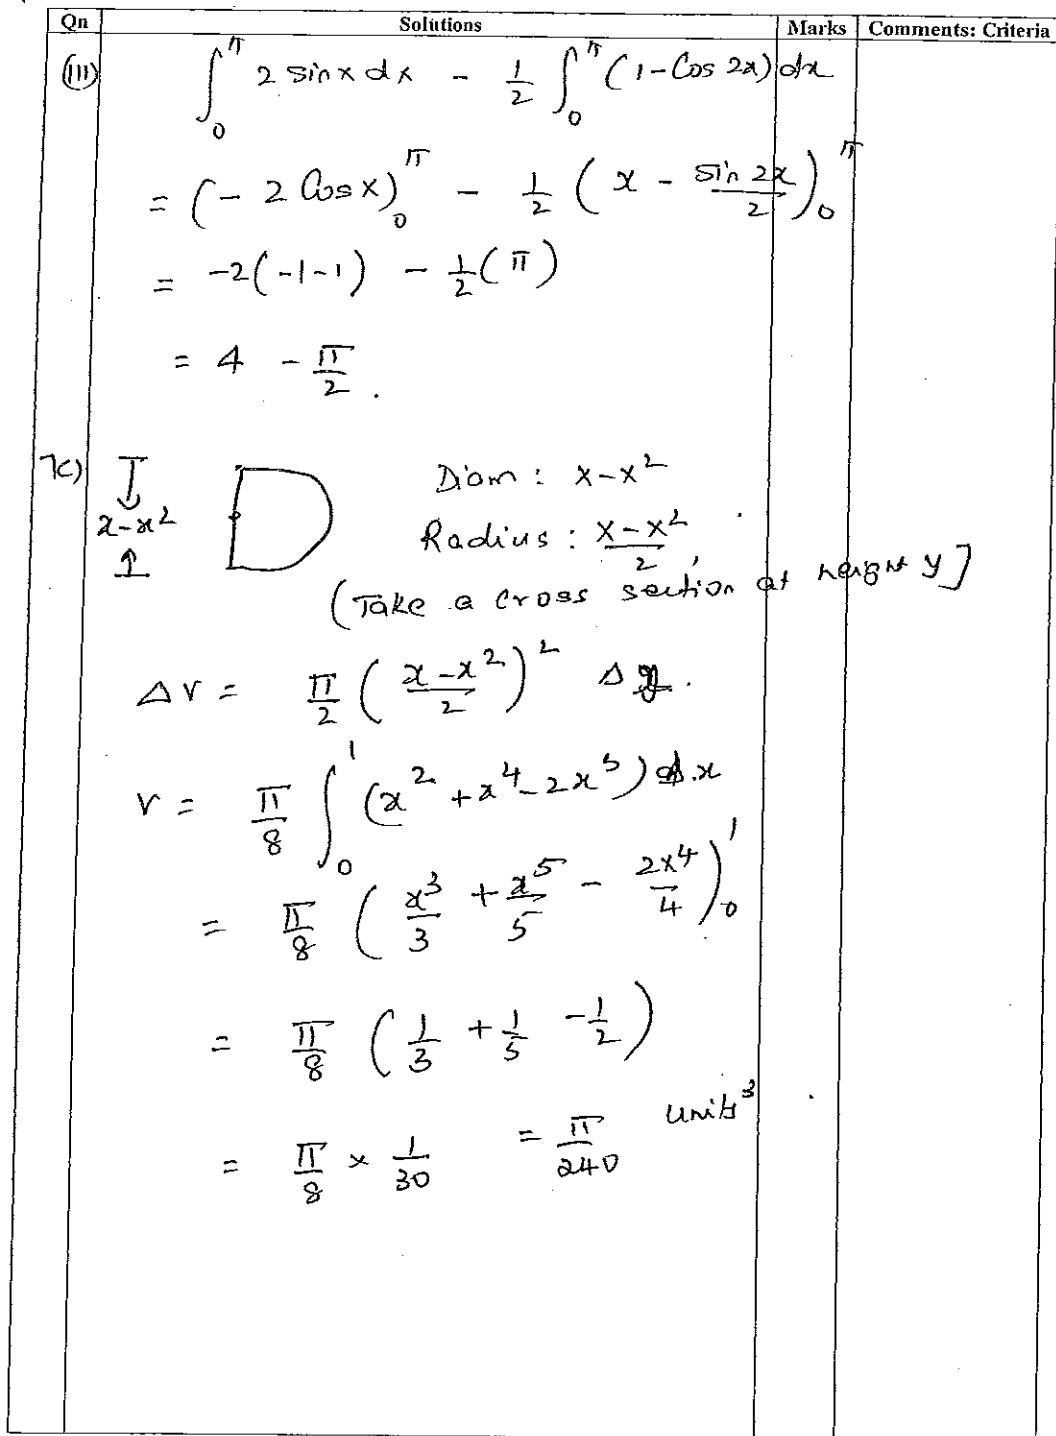 Qn Solutions Marks Comments: Criteria
(III) ∫₀^π 2 sinx dx - 1/2 ∫₀^π (1-Cos 2x) dx
= (-2 Cosx)₀^π - 1/2 (x - sin 2x/2)₀^π
= -2(-1-1) - 1/2(π)
= 4 - π/2.
7c) x-x² Diam: x-x²
Radius: x-x²/2,
(Take a cross section at height y]
ΔV = π/2 (x-x²/2)² Δ.
V = π/8 ∫₀¹ (x² + x⁴ - 2x³) d.x
= π/8 (x³/3 + x⁵/5 - 2x⁴/4)₀¹
= π/8 (1/3 + 1/5 - 1/2)
= π/8 × 1/30 = π/240 units³